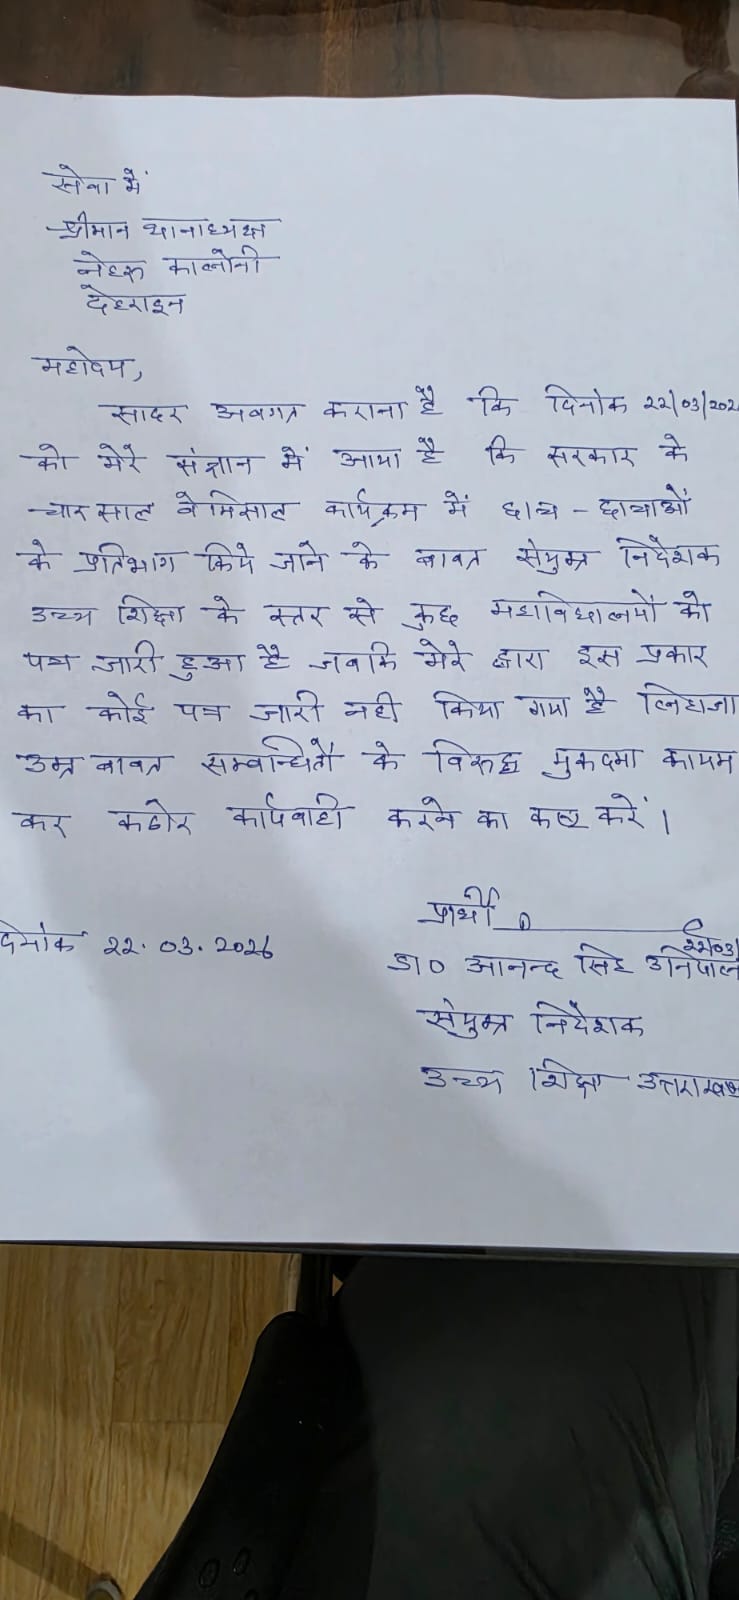 सेवा में
श्रीमान थानाध्यक्ष
नेहरू कालोनी
देहरादून
महोदय,
सादर अवगत कराना है कि दिनांक 22/03/202
को मेरे संज्ञान में आया है कि सरकार के
चार साल बेमिसाल कार्यक्रम में छात्र - छात्राओं
के प्रतिभाग किये जाने के बावत संयुक्त निदेशक
उच्च शिक्षा के स्तर से कुछ महाविद्यालयों को
पत्र जारी हुआ है जबकि मेरे द्वारा इस प्रकार
का कोई पत्र जारी नही किया गया है लिहाजा
उक्त बावत सम्बन्धितों के विरूद्ध मुकदमा कायम
कर कठोर कार्यवाही करने का कष्ट करें ।
प्रार्थी
22/03/
दिनांक 22.03.2026
डा० आनन्द सिंह उनियाल
संयुक्त निदेशक
उच्च शिक्षा उत्तराखण्ड